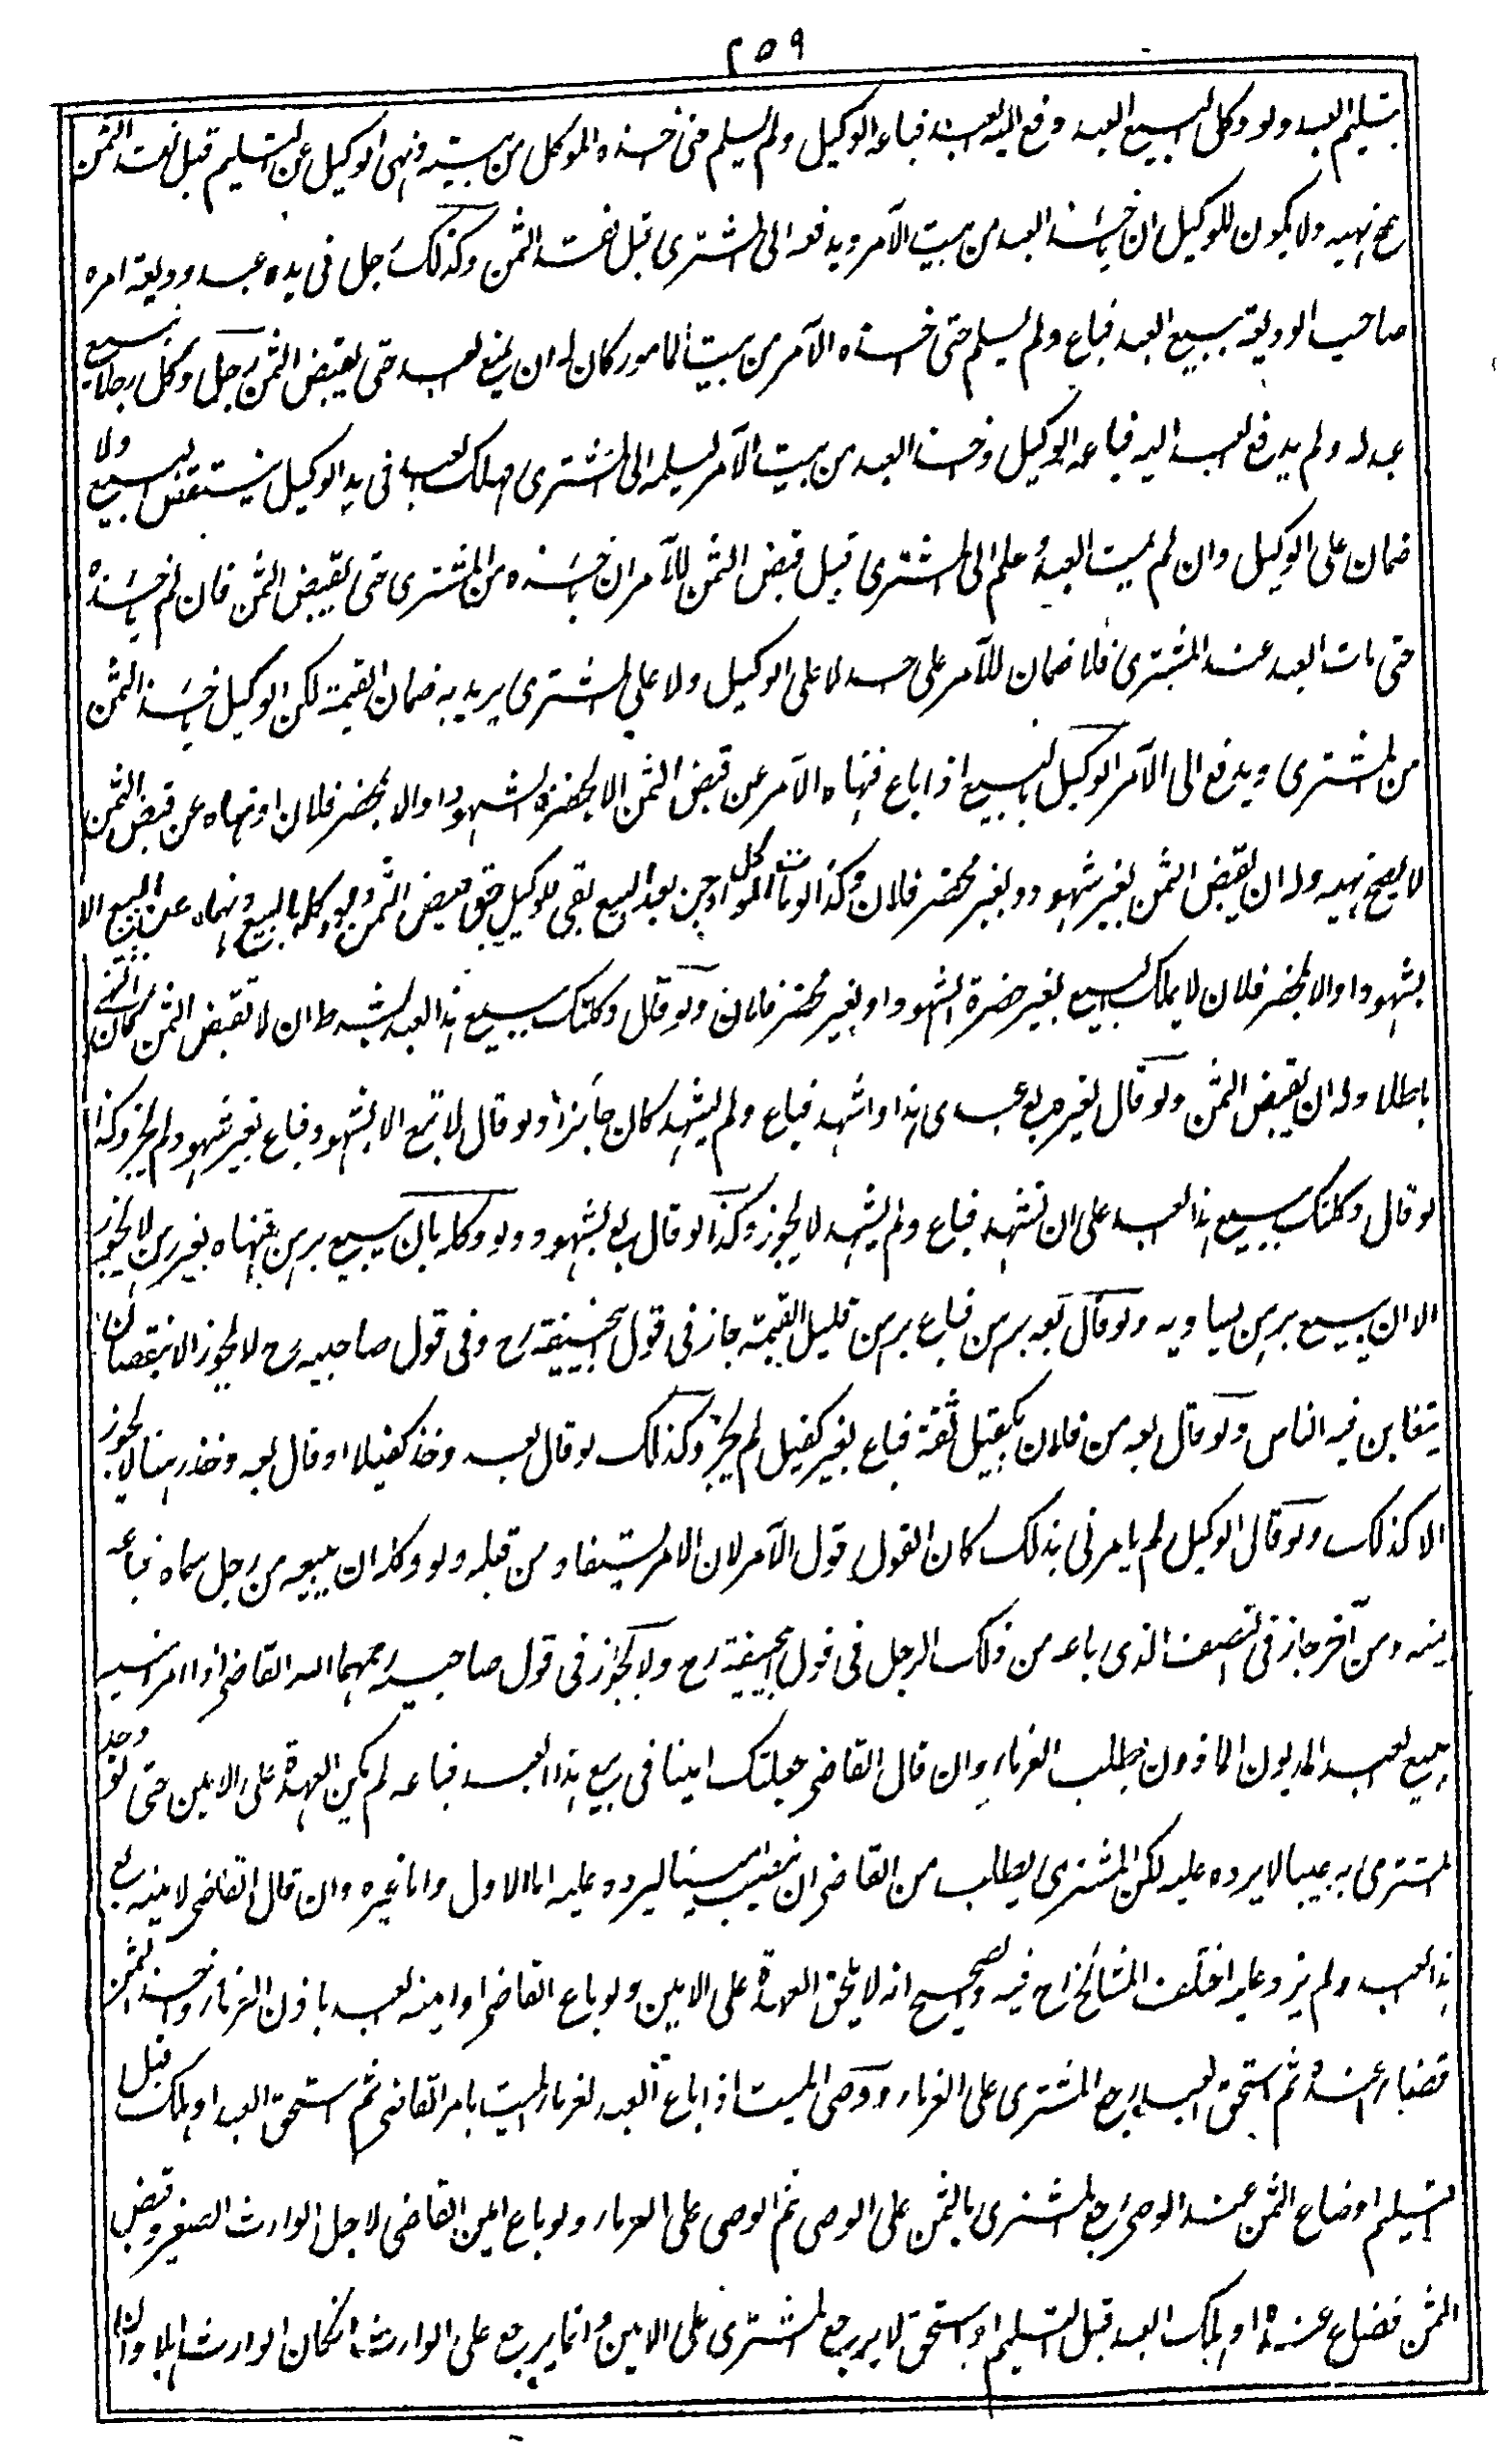 ٢٥٩
بتسليم العبد ولو وكل ببيع العبد ودفع اليه العبد فباعه الوكيل ولم يسلم حتى اخذه الموكل من بيته ونهى الوكيل عن التسليم قبل نقد الثمن
صح نهيه ولا يكون للوكيل ان ياخذ العبد من بيت الآمر ويدفعه الى المشترى قبل نقد الثمن وكذلك رجل فى يده عبد وديعة امره
صاحب الوديعة ببيع العبد فباع ولم يسلم حتى اخذه الآمر من بيت المامور كان له ان يمنع العبد حتى يقبض الثمن رجل وكل رجلا ببيع
عبد له ولم يدفع العبد اليه فباعه الوكيل واخذ العبد من بيت الآمر ليسلمه الى المشترى فهلك العبد فى يد الوكيل ينتقض البيع ولا
ضمان على الوكيل وان لم يمت العبد وسلم الى المشترى قبل قبض الثمن للآمر ان ياخذه من المشترى حتى يقبض الثمن فان لم ياخذه
حتى مات العبد عند المشترى فلا ضمان للآمر على احد لا على الوكيل ولا على المشترى يريد به ضمان القيمة لكن الوكيل ياخذ الثمن
من المشترى ويدفع الى الآمر الوكيل بالبيع اذا باع فنهاه الآمر عن قبض الثمن الا بحضرة الشهود او الا بمحضر فلان او نهاه عن قبض الثمن
لا يصح نهيه وله ان يقبض الثمن بغير شهود وبغير محضر فلان وكذا لو مات الموكل او جن بعد البيع بقى للوكيل حق قبض الثمن ولو وكله بالبيع ونهاه عن البيع الا
بشهود او الا بمحضر فلان لا يملك البيع بغير حضرة الشهود او بغير محضر فلان ولو قال وكلتك ببيع هذا العبد بشرط ان لا تقبض الثمن كان النهى
باطلا وله ان يقبض الثمن ولو قال لغيره بع عبدى هذا واشهد فباع ولم يشهد كان جائزا ولو قال لا تبع الا بشهود فباع بغير شهود لم يجز وكذا
لو قال وكلتك ببيع هذا العبد على ان تشهد فباع ولم يشهد لا يجوز وكذا لو قال بع بشهود ولو وكله بان يبيع برهن فباعه بغير رهن لا يجوز
الا ان يبيع برهن يساويه ولو قال بعه برهن فباع برهن قليل القيمة جاز فى قول ابيحنيفة رح وفى قول صاحبيه رح لا يجوز الا بنقصان
يتغابن فيه الناس ولو قال بعه من فلان بكفيل ثقة فباع بغير كفيل لم يجز وكذلك لو قال بعه وخذ كفيلا او قال بعه وخذ رهنا لا يجوز
الا كذلك ولو قال الوكيل لم يامرنى بذلك كان القول قول الآمر لان الامر يستفاد من قبله ولو وكله ان يبيعه من رجل سماه فباعه
منه ومن آخر جاز فى النصف الذى باعه من ذلك الرجل فى قول ابيحنيفة رح ولا يجوز فى قول صاحبيه رحمهما الله القاضى اذا امر امينه
ببيع العبد المديون الماذون بطلب الغرماء وان قال القاضى جعلتك امينا فى بيع هذا العبد فباعه لم يكن العهدة على الامين حتى لو وجد
المشترى به عيبا لا يرده عليه لكن المشترى يطلب من القاضى ان ينصب امينا ليرده عليه اما الاول واما غيره وان قال القاضى لامينه بع
هذا العبد ولم يزد عليه اختلف المشائخ رح فيه والصحيح انه لا يلحق العهدة على الامين ولو باع القاضى او امينه العبد باذن الغرماء واخذ الثمن
فضاع عنده ثم استحق العبد رجع المشترى على الغرماء ووصى الميت اذا باع العبد لغرماء الميت بامر القاضى ثم استحق العبد او هلك قبل
التسليم او ضاع الثمن عند الوصى رجع المشترى بالثمن على الوصى ثم الوصى على الغرماء ولو باع امين القاضى لاجل الوارث الصغير وقبض
الثمن فضاع عنده او هلك العبد قبل التسليم او استحق لا يرجع المشترى على الامين وانما يرجع على الوارث ان كان الوارث اهلا وان